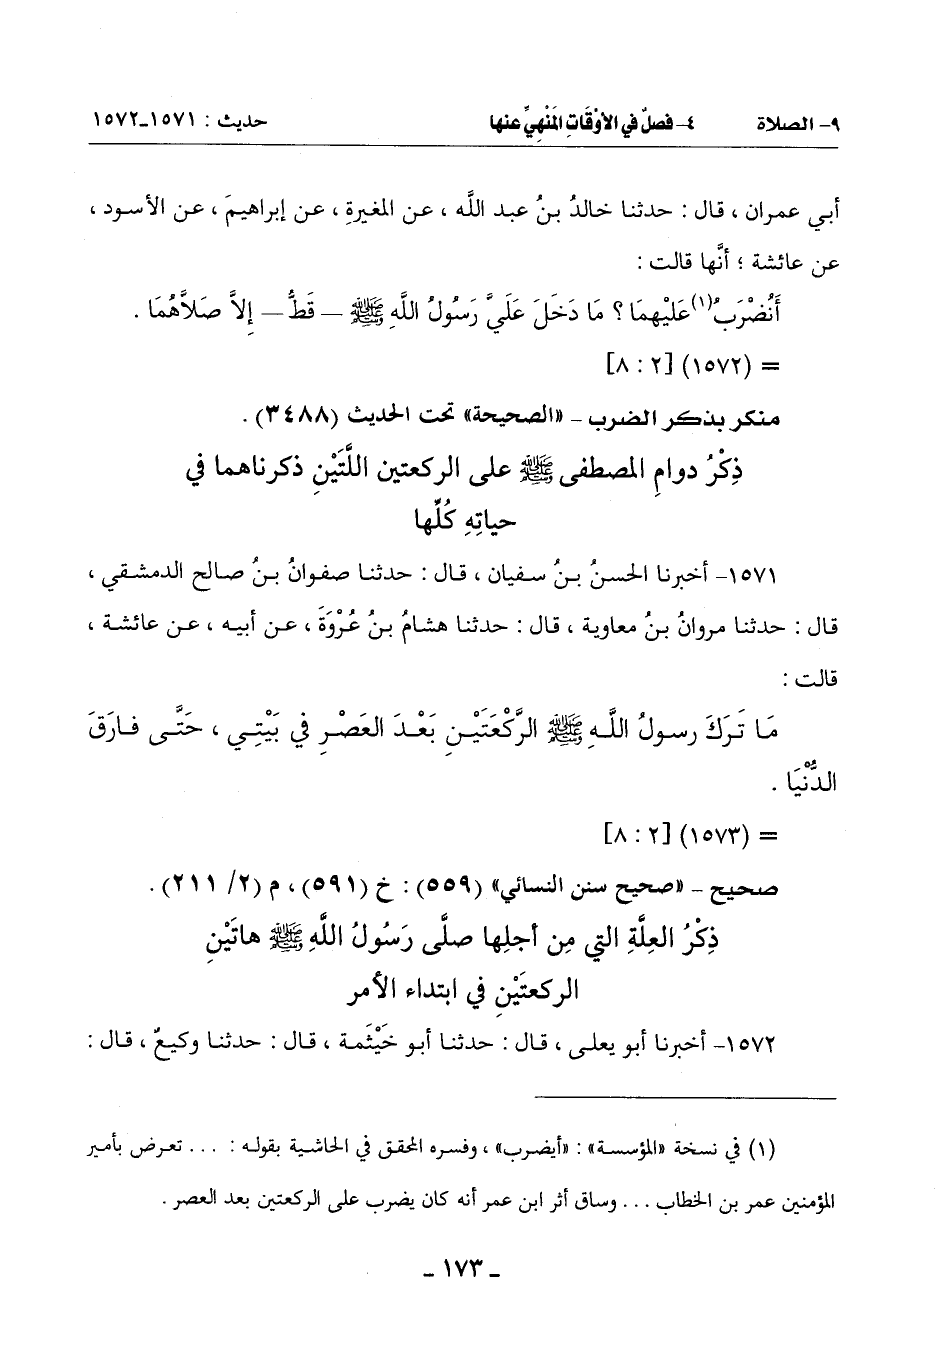 ٩- الصلاة ٤- فصلٌ في الأوْقَاتِ المَنْهِيِّ عنها حديث : ١٥٧١-١٥٧٢
أبي عمران ، قال : حدثنا خالدُ بنُ عبد الله ، عن المغيرةِ ، عن إبراهيمَ ، عن الأسود ،
عن عائشة ؛ أنَّها قالت :
أَنُضْرَبُ(١) عَلَيْهِمَا ؟ مَا دَخَلَ عَلَيَّ رَسُولُ اللَّهِ ﷺ – قَطُّ – إِلاَّ صَلاَّهُمَا .
= (١٥٧٢) [٢ : ٨]
منكر بذكر الضرب – «الصحيحة» تحت الحديث (٣٤٨٨) .
ذِكْرُ دوامِ المصطفى ﷺ على الركعتين اللَّتَيْنِ ذكرناهما في
حياتِهِ كُلِّها
١٥٧١- أخبرنا الحسنُ بنُ سفيان ، قال : حدثنا صفوانُ بنُ صالح الدمشقي ،
قال : حدثنا مروانُ بنُ معاوية ، قال : حدثنا هشامُ بنُ عُرْوَةَ ، عن أبيه ، عن عائشة ،
قالت :
مَا تَرَكَ رسولُ اللَّهِ ﷺ الرَّكْعَتَيْنِ بَعْدَ العَصْرِ في بَيْتِي ، حَتَّى فارَقَ
الدُّنْيَا .
= (١٥٧٣) [٢ : ٨]
صحيح – «صحيح سنن النسائي» (٥٥٩) : خ (٥٩١) ، م (٢/ ٢١١) .
ذِكْرُ العِلَّةِ التي مِن أجلِها صلَّى رَسُولُ اللَّهِ ﷺ هاتَيْنِ
الركعتَيْنِ في ابتداء الأمر
١٥٧٢- أخبرنا أبو يعلى ، قال : حدثنا أبو خَيْثَمة ، قال : حدثنا وكيعٌ ، قال :
(١) في نسخة «المؤسسة» : «أيضرب» ، وفسره المحقق في الحاشية بقوله : ... تعرض بأمير
المؤمنين عمر بن الخطاب ... وساق أثر ابن عمر أنه كان يضرب على الركعتين بعد العصر .
- ١٧٣ -